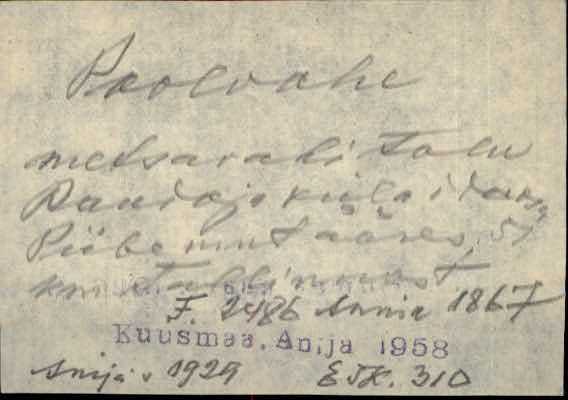 Poolvahe
metsavahi talu
Raudoja küla idaosa
Piibe mnt ääres, 51
km Tallinnast
F. 2486 Annia 1867
Kuusmaa, Anija 1958
Anija v 1929 ETK. 310